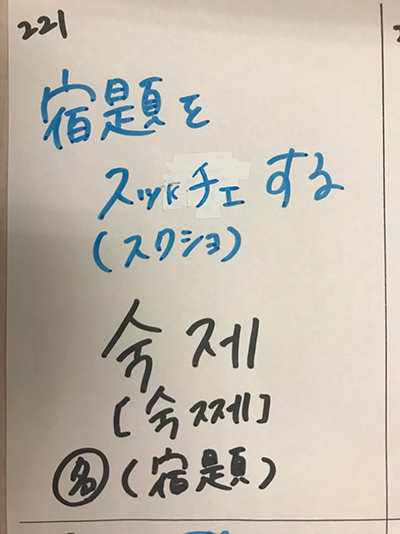 221
宿題を
スッkチェする
(スクショ)
숙제
[숙쩨]
名(宿題)